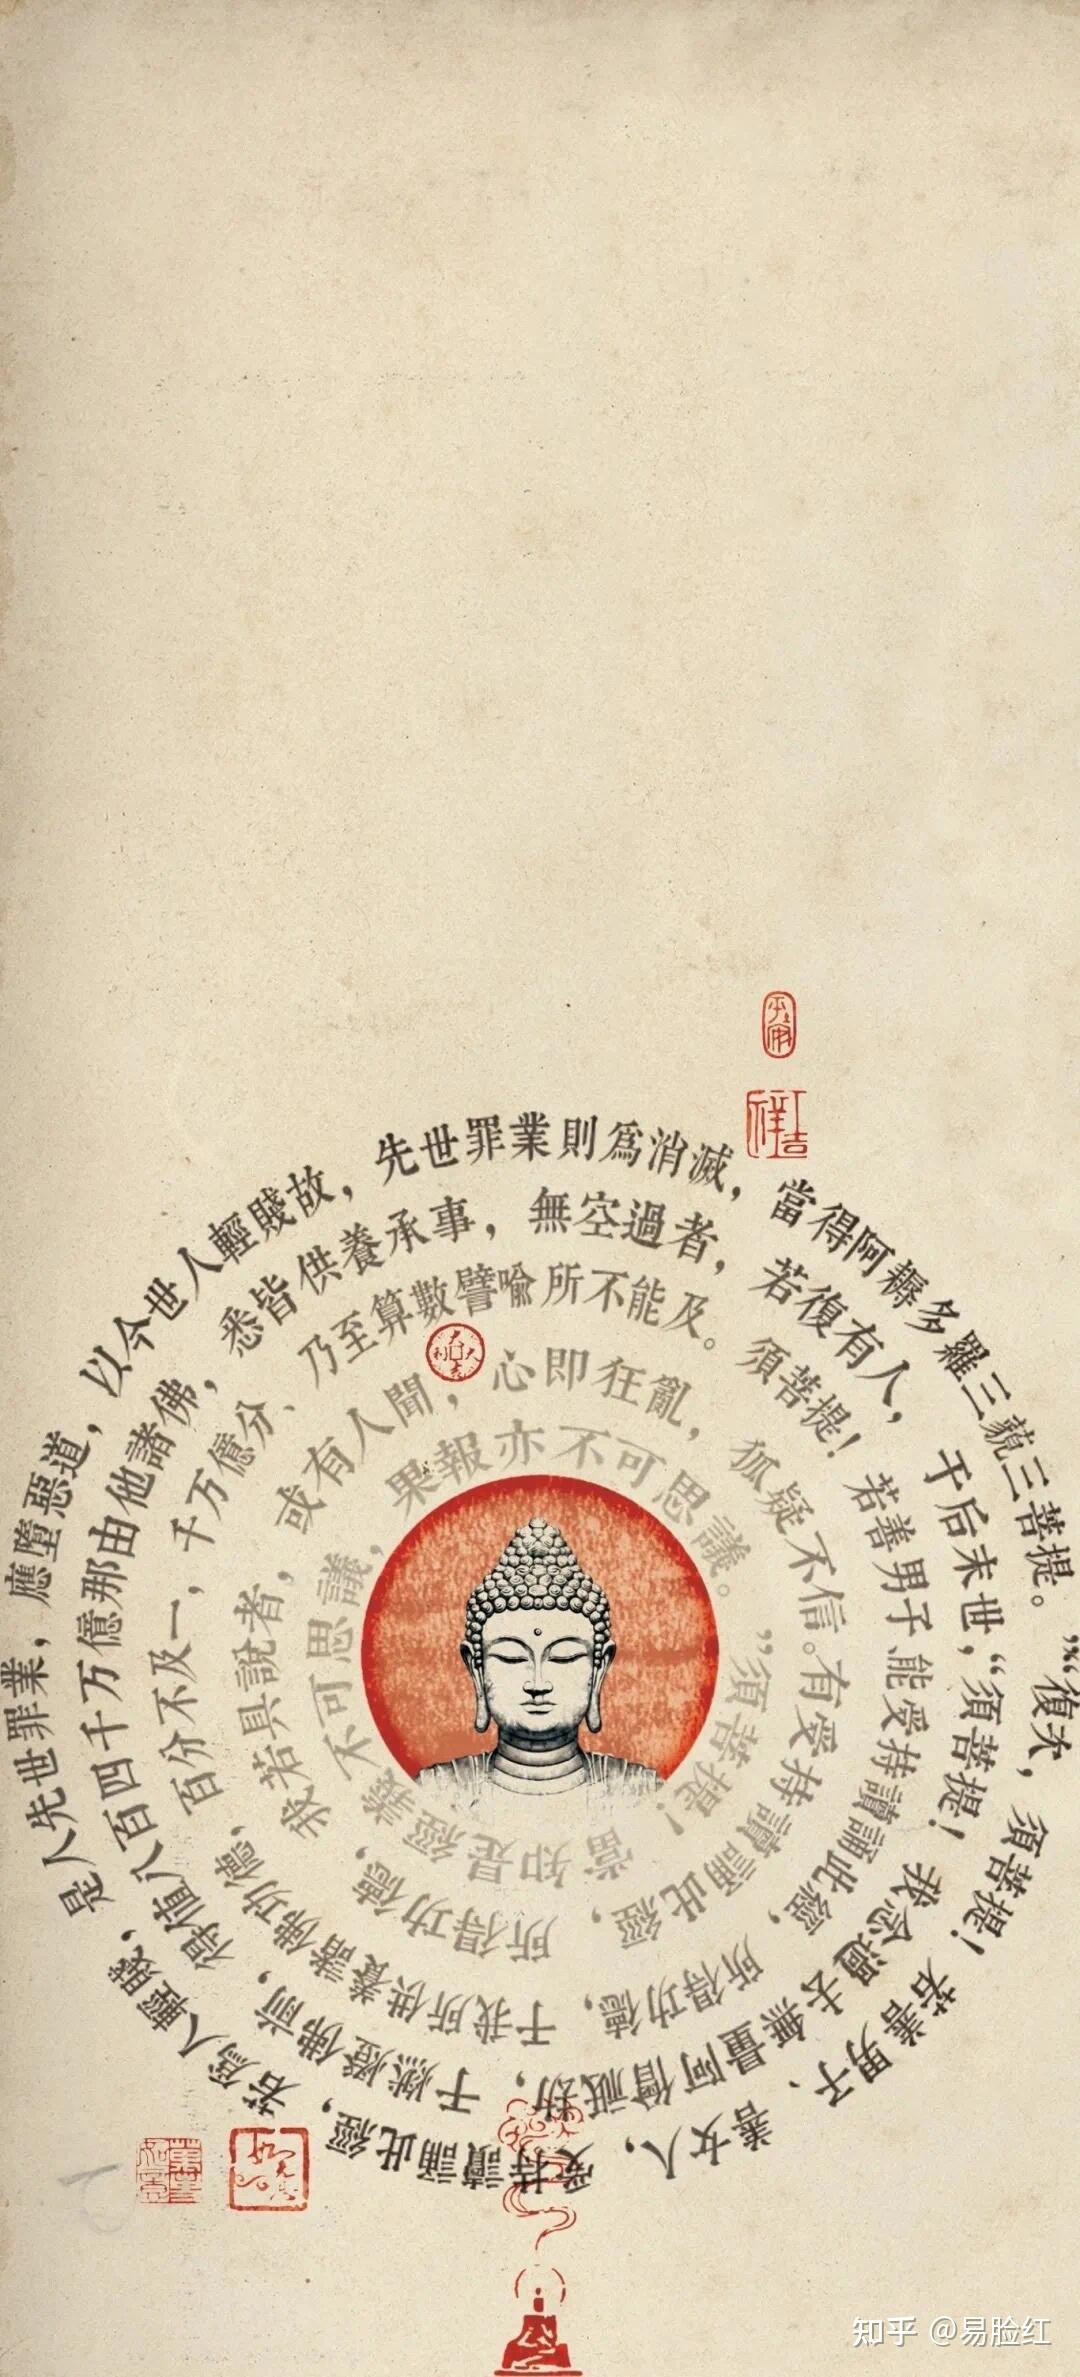 “復次，須菩提！若善男子、善女人，受持讀誦此經，若爲人輕賤，是人先世罪業，應墮惡道，以今世人輕賤故，先世罪業則爲消滅，當得阿耨多羅三藐三菩提。”
“須菩提！我念過去無量阿僧祇劫，于燃燈佛前，得值八百四千万億那由他諸佛，悉皆供養承事，無空過者，若復有人，于后未世，
能受持讀誦此經，所得功德，于我所供養諸佛功德，百分不及一，千万億分、乃至算數譬喻所不能及。須菩提！若善男子
有受持讀誦此經，所得功德，我若具說者，或有人聞，心即狂亂，狐疑不信。
“須菩提！當知是經義不可思議，果報亦不可思議。”
吉祥
大吉大利
知乎 @易脸红